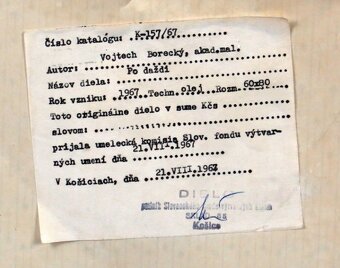 Číslo katalógu: K-157/67
Vojtech Borecký, akad.mal.
Autor:
Po daždi
Názov diela:
Rok vzniku: 1967 Techn. olej Rozm. 60x80
Toto originálne dielo v sume Kčs
slovom:
prijala umelecká komisia Slov. fondu výtvar-
ných umení dňa 21.VIII.1967
V Košiciach, dňa 21.VIII.1967
DIELO
Košice